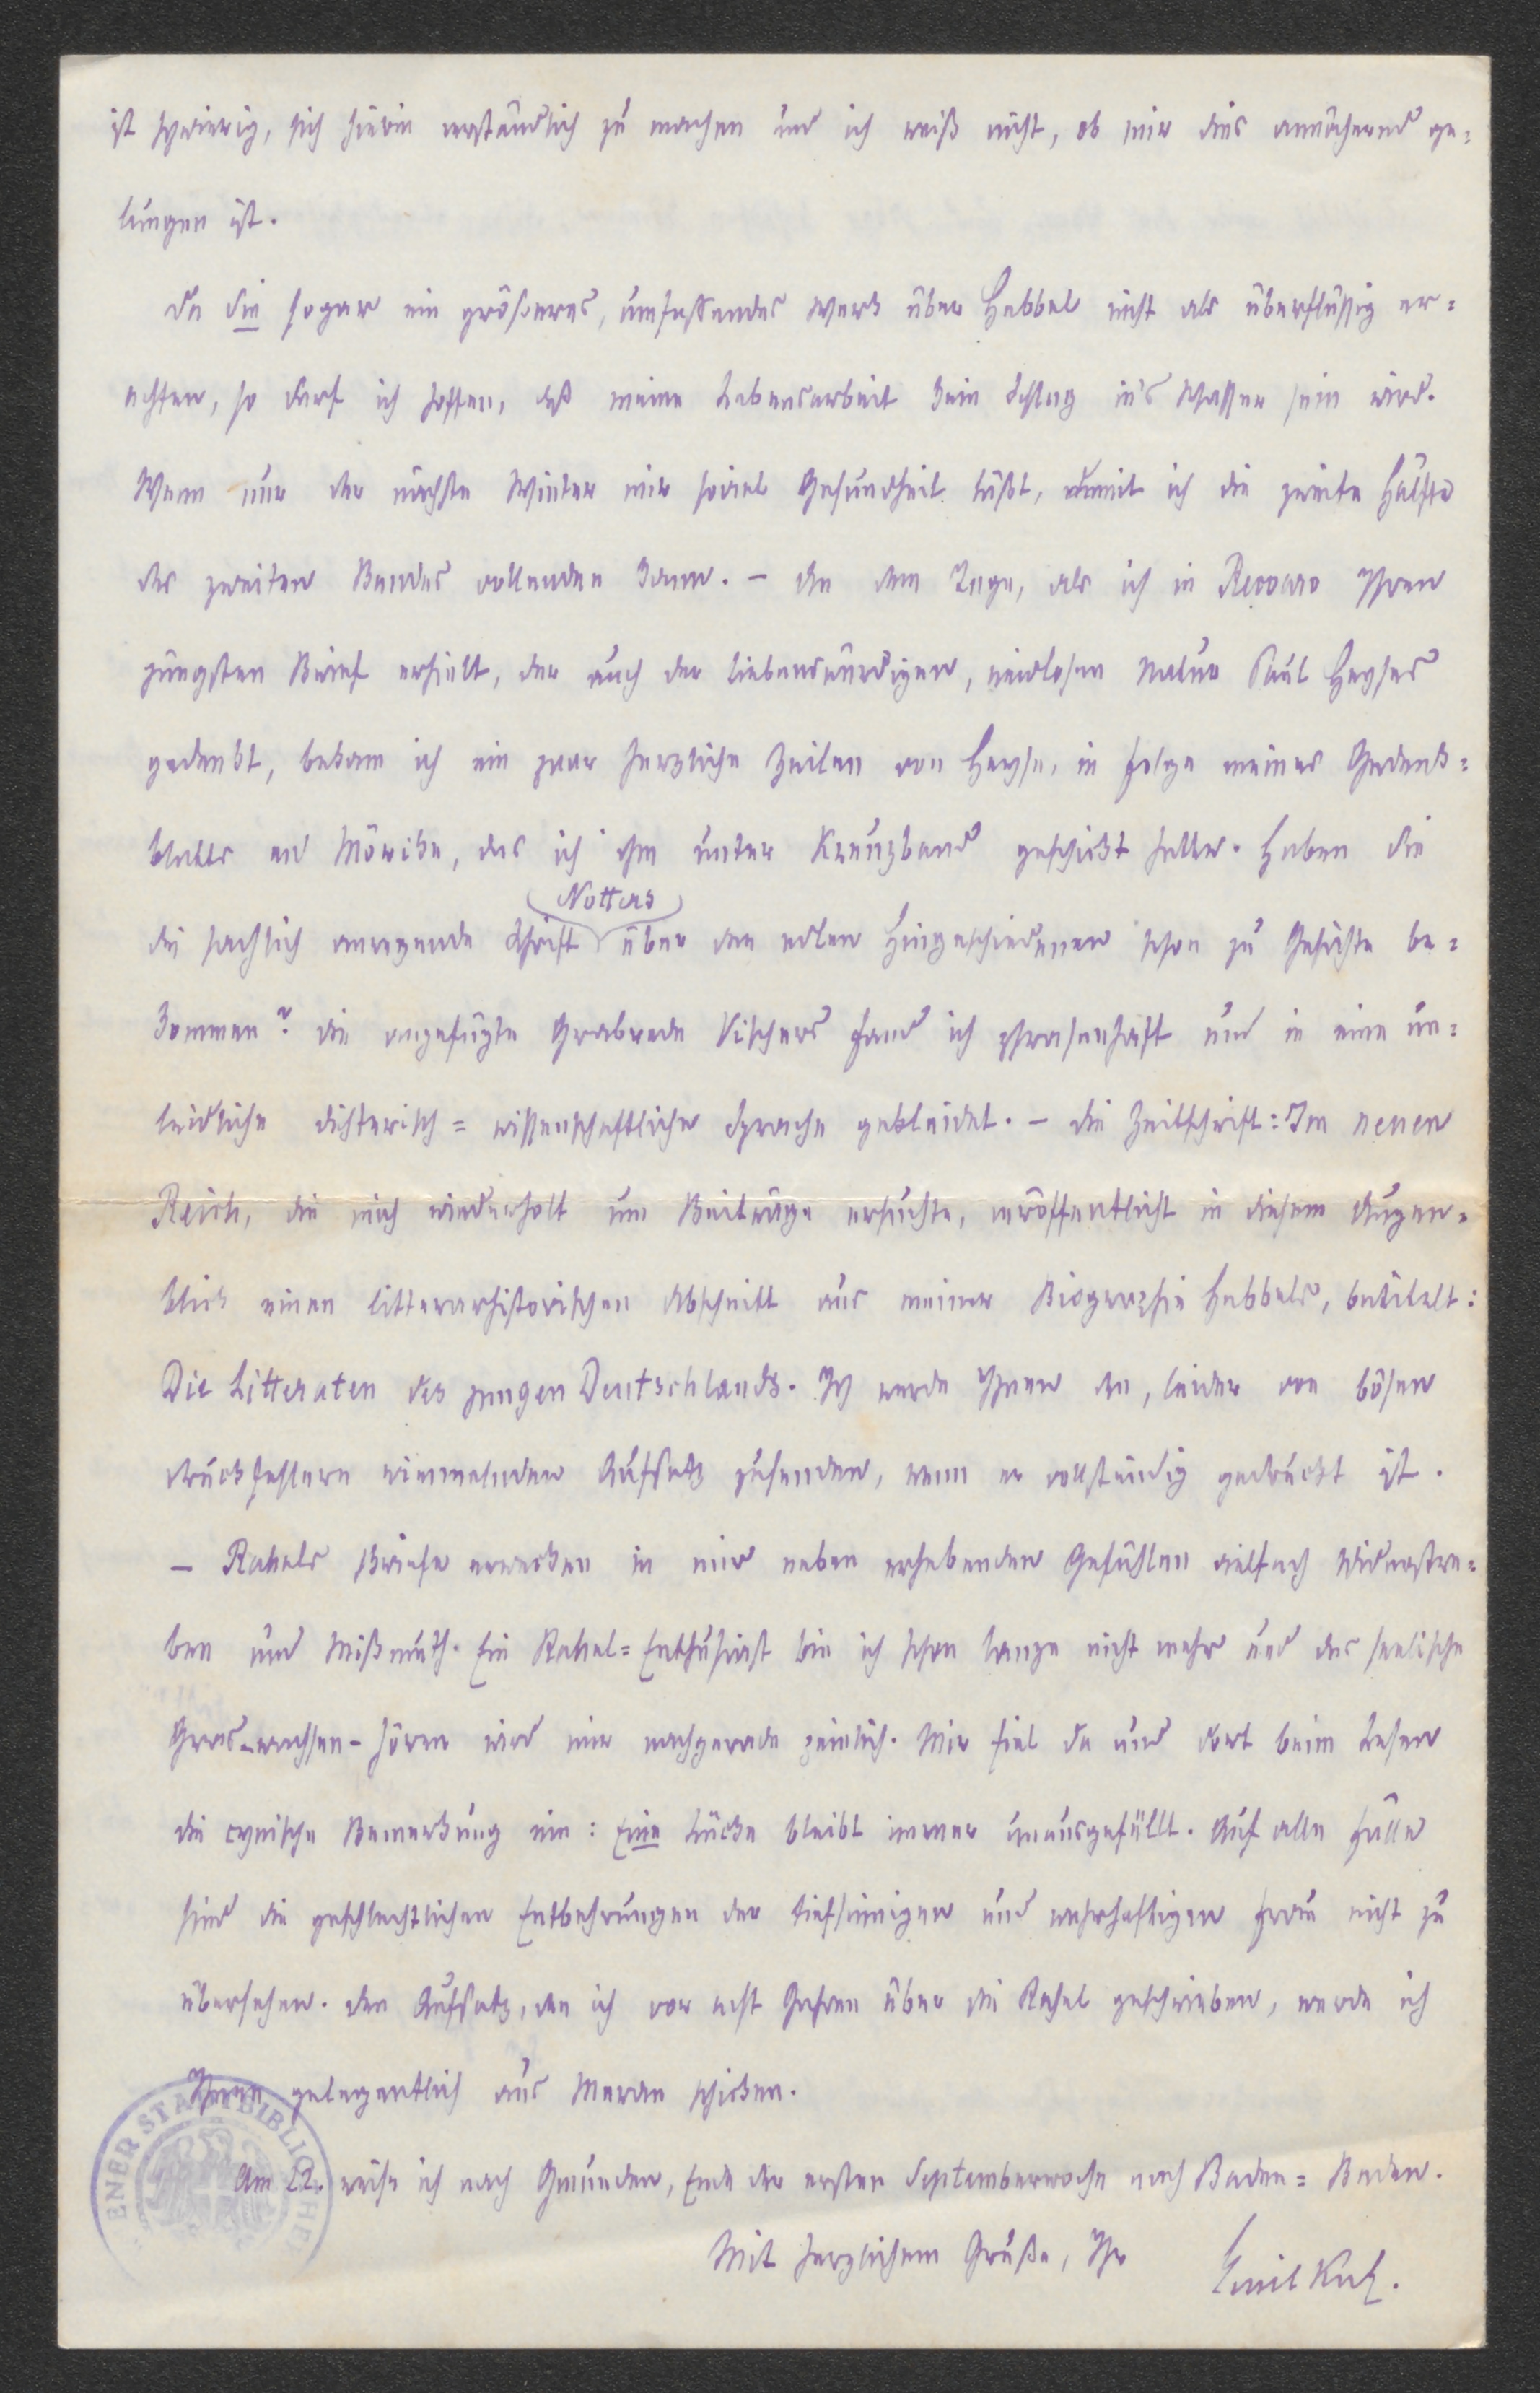 ist schwierig, sich hierin verständlich zu machen und ich weiß nicht, ob mir dies annähernd ge=
lungen ist.
Da Sie sogar ein größeres, umfassendes Werk über Hebbel nicht als überflüssig er=
achten, so darf ich hoffen, daß meine Lebensarbeit kein Schlag in's Wasser sein wird.
Wenn nur der nächste Winter mir soviel Gesundheit läßt, damit ich die zweite Hälfte
des zweiten Bandes vollenden kann. – An dem Tage, als ich in Recoaro Ihren
jüngsten Brief erhielt, der auch der liebenswürdigen, neidlosen Natur Paul Heyses
gedenkt, bekam ich ein paar herzliche Zeilen von Heyse, in Folge meines Gedenk=
blatts an Mörike, das ich ihm unter Kreuzband geschickt hatte. Haben Sie
Notters
die sachlich anregende Schrift über den edlen Hingeschiedenen schon zu Gesichte be=
kommen? Die angefügte Grabrede Vischers fand ich phrasenhaft und in eine un=
leidliche dichterisch=wissenschaftliche Sprache gekleidet. – Die Zeitschrift: Im neuen
Reich, die mich wiederholt um Beiträge ersuchte, veröffentlicht in diesem Augen=
blick einen litterarhistorischen Abschnitt aus meiner Biographie Hebbels, betitelt:
Die Litteraten des jungen Deutschlands. Ich werde Ihnen den, leider von bösen
Druckfehlern wimmelnden Aufsatz zusenden, wenn er vollständig gedruckt ist.
– Rahels Briefe erwecken in mir neben erhebenden Gefühlen vielfach Widerstre=
ben und Mißmuth. Ein Rahel=Enthusiast bin ich schon lange nicht mehr und das seelische
Graswachsen-Hören wird mir nachgerade peinlich. Mir fiel da und dort beim Lesen
die cynische Bemerkung ein: Eine Lücke bleibt immer unausgefüllt. Auf alle Fälle
sind die geschlechtlichen Entbehrungen der tiefsinnigen und wahrhaftigen Frau nicht zu
übersehen. Den Aufsatz, den ich vor acht Jahren über die Rahel geschrieben, werde ich
Ihnen gelegentlich aus Meran schicken.
Am 22. reise ich nach Gmunden, Ende der ersten Septemberwoche nach Baden=Baden.
Mit herzlichem Gruße, Ihr
Emil Kuh.
ENER STADTBIBLIOTHE